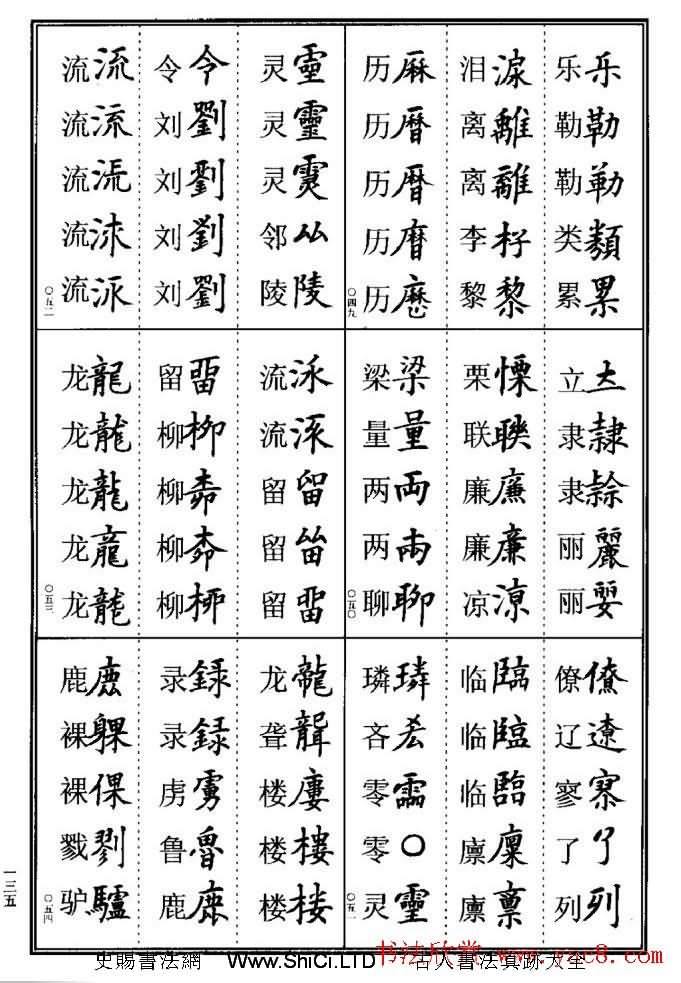 乐乐 勒勒 勒勒 类類 累累
泪淚 离離 离離 李杍 黎黎
历厤 历曆 历曆 历 历歷
〇四九
立立 隶隸 隶 丽麗 丽
栗慄 联聨 廉廉 廉廉 凉凉
梁梁 量量 两両 两 聊聊
〇五〇
僚僚 辽遼 寥寮 了了 列列
临臨 临臨 临臨 廪廩 廪稟
璘璘 吝 零 零〇 灵靈
〇五一
灵靈 灵靈 灵 邻厸 陵陵
令令 刘劉 刘劉 刘劉 刘劉
流流 流流 流 流 流
〇五二
流 流 留留 留 留
留 柳柳 柳 柳 柳
龙龍 龙龍 龙龍 龙龍 龙龍
〇五三
龙龍 聋聾 楼廔 楼樓 楼楼
录録 录録 虏虜 鲁魯 鹿鹿
鹿鹿 裸躶 裸倮 戮剹 驴驢
〇五四
一三五
史賜書法網 WWW.ShiCi.LTD 古人書法真跡大全
书法欣赏 www.yzc8.com